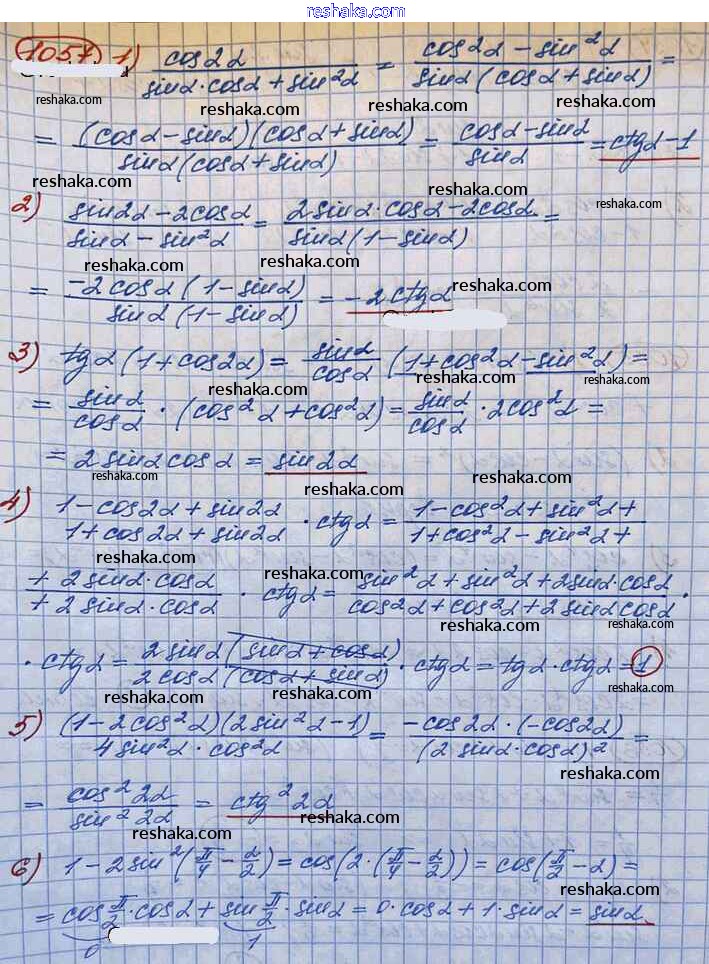 reshaka.com
1057. 1) cos2α / (sinα·cosα + sin²α) = (cos2α - sin²α) / (sinα(cosα + sinα)) =
reshaka.com reshaka.com reshaka.com
= (cosα - sinα)(cosα + sinα) / (sinα(cosα + sinα)) = (cosα - sinα) / sinα = ctgα - 1
reshaka.com reshaka.com reshaka.com
2) (sin2α - 2cosα) / (sinα - sin²α) = (2sinα·cosα - 2cosα) / (sinα(1 - sinα)) =
reshaka.com reshaka.com reshaka.com
= -2cosα(1 - sinα) / (sinα(1 - sinα)) = -2ctgα
reshaka.com
3) tgα(1 + cos2α) = sinα/cosα (1 + cos²α - sin²α) =
reshaka.com reshaka.com
= sinα/cosα · (cos²α + cos²α) = sinα/cosα · 2cos²α =
= 2sinαcosα = sin2α
reshaka.com reshaka.com
4) (1 - cos2α + sin2α) / (1 + cos2α + sin2α) · ctgα = (1 - cos²α + sin²α + / 1 + cos²α - sin²α +
reshaka.com reshaka.com reshaka.com
+ 2sinα·cosα / + 2sinα·cosα) · ctgα = (sin²α + sin²α + 2sinα·cosα) / (cos2α + cos²α + 2sinαcosα) ·
reshaka.com
· ctgα = 2sinα(sinα + cosα) / (2cosα(cosα + sinα)) · ctgα = tgα·ctgα = 1
reshaka.com reshaka.com reshaka.com
5) (1 - 2cos²α)(2sin²α - 1) / (4sin²α·cos²α) = -cos2α·(-cos2α) / (2sinα·cosα)² =
reshaka.com reshaka.com
= cos²2α / sin²2α = ctg²2α
reshaka.com reshaka.com
6) 1 - 2sin²(π/4 - α/2) = cos(2·(π/4 - α/2)) = cos(π/2 - α) =
reshaka.com reshaka.com
= cos π/2 · cosα + sin π/2 · sinα = 0·cosα + 1·sinα = sinα.
0 1
reshaka.com